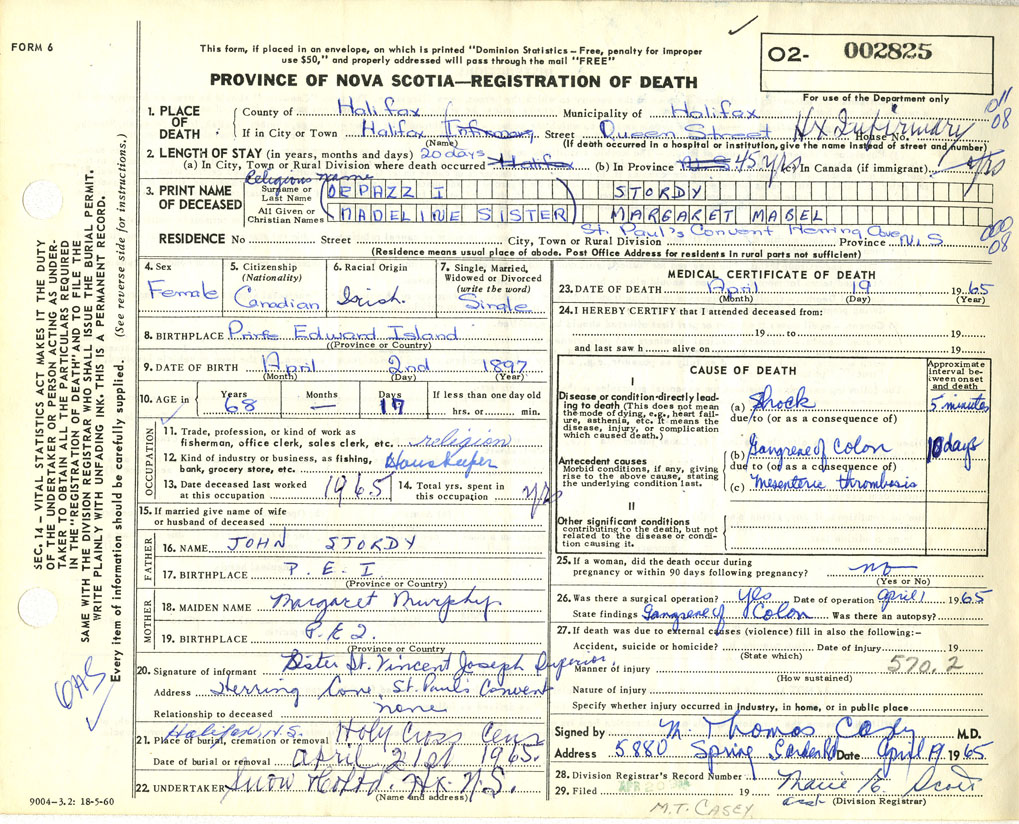 FORM 6
This form, if placed in an envelope, on which is printed "Dominion Statistics – Free, penalty for improper
use $50," and properly addressed will pass through the mail "FREE"
PROVINCE OF NOVA SCOTIA—REGISTRATION OF DEATH
O2- 002825
For use of the Department only
1. PLACE OF DEATH
County of Halifax Municipality of Halifax
If in City or Town Halifax Infirmary Street Queen Street House No. Hx Infirmary
(Name) (If death occurred in a hospital or institution, give the name instead of street and number)
011
08
2. LENGTH OF STAY (in years, months and days) 20 days
(a) In City, Town or Rural Division where death occurred Halifax (b) In Province N.S. 45 yrs (c) In Canada (if immigrant) yrs
Religious name
3. PRINT NAME OF DECEASED
Surname or Last Name DEPAZZI STORDY
All Given or Christian Names MADELINE SISTER MARGARET MABEL
St. Paul's Convent Herring Cove
RESIDENCE No Street City, Town or Rural Division Province N.S
(Residence means usual place of abode. Post Office Address for residents in rural parts not sufficient)
000
08
4. Sex
Female
5. Citizenship (Nationality)
Canadian
6. Racial Origin
Irish
7. Single, Married, Widowed or Divorced (write the word)
Single
8. BIRTHPLACE Prince Edward Island
(Province or Country)
9. DATE OF BIRTH April 2nd 1897
(Month) (Day) (Year)
10. AGE in Years 68 Months — Days 17 If less than one day old
hrs. or min.
OCCUPATION
11. Trade, profession, or kind of work as
fisherman, office clerk, sales clerk, etc. religion
12. Kind of industry or business, as fishing,
bank, grocery store, etc. Housekeeper
13. Date deceased last worked
at this occupation 1965
14. Total yrs. spent in
this occupation yrs
15. If married give name of wife
or husband of deceased
FATHER
16. NAME JOHN STORDY
17. BIRTHPLACE P.E.I
(Province or Country)
MOTHER
18. MAIDEN NAME Margaret Murphy
19. BIRTHPLACE P.E.I.
(Province or Country
20. Signature of informant Sister St. Vincent Joseph Superior
Address Herring Cove, St. Pauls Convent
Relationship to deceased none
Halifax, N.S.
21. Place of burial, cremation or removal Holy Cross Cem
Date of burial or removal April 21st 1965.
22. UNDERTAKER Snow Hx. N.S.
(Name and address)
9004—3.2: 18-5-60
MEDICAL CERTIFICATE OF DEATH
23. DATE OF DEATH April 19 1965
(Month) (Day) (Year)
24. I HEREBY CERTIFY that I attended deceased from:
19 to
19
and last saw h alive on 19
CAUSE OF DEATH
Approximate interval between onset and death
I
Disease or condition directly leading to death (This does not mean the mode of dying, e.g., heart failure, asthenia, etc. It means the disease, injury, or complication which caused death.)
(a) Shock 5 minutes
due to (or as a consequence of)
Antecedent causes
Morbid conditions, if any, giving rise to the above cause, stating the underlying condition last.
(b) Gangrene of Colon 10 days
due to (or as a consequence of)
(c) Mesenteric thrombosis
II
Other significant conditions
contributing to the death, but not related to the disease or condition causing it.
25. If a woman, did the death occur during
pregnancy or within 90 days following pregnancy? no
(Yes or No)
26. Was there a surgical operation? Yes Date of operation April 1 1965
State findings Gangrene of Colon Was there an autopsy?
27. If death was due to external causes (violence) fill in also the following:–
Accident, suicide or homicide? Date of injury 19
(State which)
Manner of injury 570.2
(How sustained)
Nature of injury
Specify whether injury occurred in industry, in home, or in public place
Signed by M. Thomas Casey M.D.
Address 5880 Spring Garden Rd Date April 19 1965
28. Division Registrar's Record Number
29. Filed APR 20 19 Marie E. Scott
asst (Division Registrar)
M.T. CASEY.
SEC. 14 – VITAL STATISTICS ACT MAKES IT THE DUTY
OF THE UNDERTAKER OR PERSON ACTING AS UNDER-
TAKER TO OBTAIN ALL THE PARTICULARS REQUIRED
IN THE "REGISTRATION OF DEATH" AND TO FILE THE
SAME WITH THE DIVISION REGISTRAR WHO SHALL ISSUE THE BURIAL PERMIT.
WRITE PLAINLY WITH UNFADING INK. THIS IS A PERMANENT RECORD.
Every item of information should be carefully supplied. (See reverse side for instructions.)
OAS